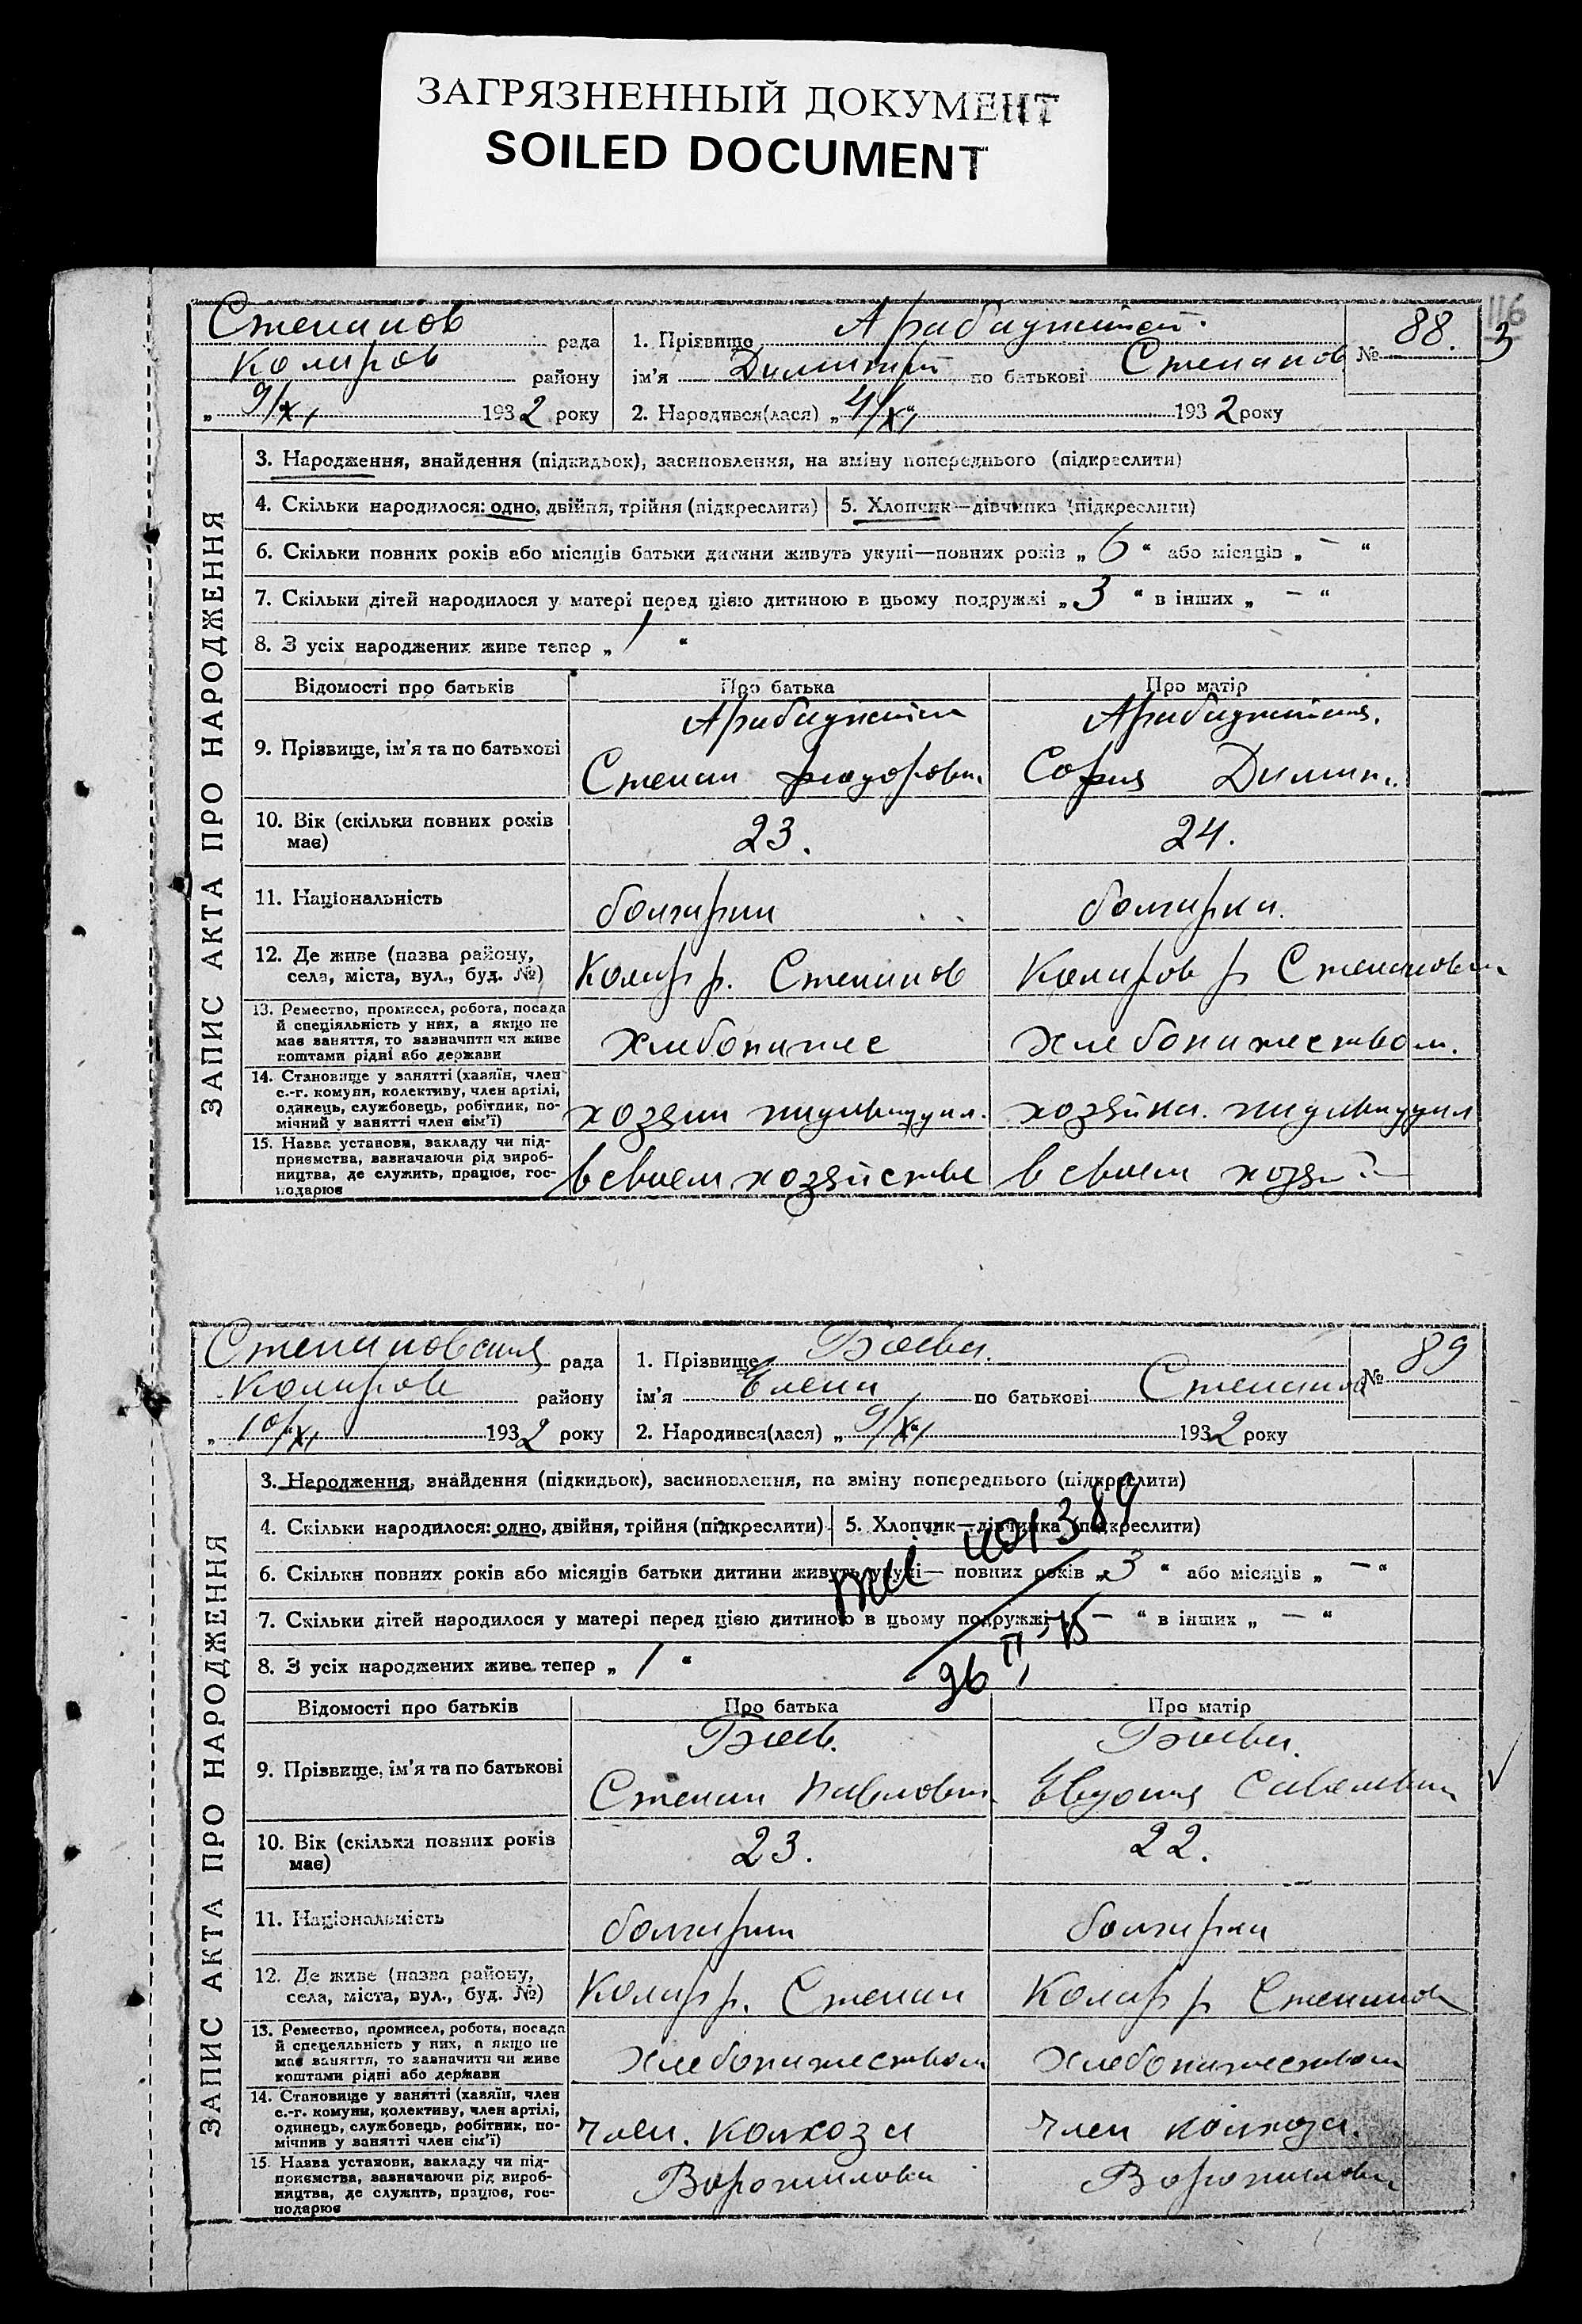 ЗАГРЯЗНЕННЫЙ ДОКУМЕНТ
SOILED DOCUMENT
116
3
Степанов рада
Коларов району
„ 9/XI 1932 року
1. Прізвище
ім'я Димитрий по батькові Степанов
2. Народився(лася) „ 4/XI “ 1932 року
№ 88.
ЗАПИС АКТА ПРО НАРОДЖЕННЯ
3. Народження, знайдення (підкидьок), засиновлення, на зміну попереднього (підкреслити)
4. Скільки народилося: одно, двійня, трійня (підкреслити)
5. Хлопчик—дівчинка (підкреслити)
6. Скільки повних років або місяців батьки дитини живуть укупі—повних років „ 6 “ або місяців „ — “
7. Скільки дітей народилося у матері перед цією дитиною в цьому подружжі „ 3 “ в інших „ — “
8. З усіх народжених живе тепер „ 1 “
Відомості про батьків Про батька Про матір
9. Прізвище, ім'я та по батькові
Степан Феодорович
София Димит.
10. Вік (скільки повних років має) 23. 24.
11. Національність болгарин болгарка.
12. Де живе (назва району, села, міста, вул., буд. №) Колар р. Степанов Коларов р Степановка
13. Ремество, промисел, робота, посада
й спеціяльність у них, а якщо не
має заняття, то зазначити чи живе
коштами рідні або держави
Хлебопашес Хлебопашеством.
14. Становище у занятті (хазяїн, член
с.-г. комуни, колективу, член артілі,
одинець, службовець, робітник, по-
мічний у занятті член сім'ї)
хозяин индивидуал. хозяйка. индивидуал
15. Назва установи, закладу чи під-
приємства, зазначаючи рід вироб-
ництва, де служить, працює, гос-
подарює
в своем хозяйстве в своем хозя
Степановская рада
Коларов району
„ 10/XI 1932 року
1. Прізвище Боева.
ім'я Елена по батькові Степанов
2. Народився(лася) „ 9/XI “ 1932 року
№ 89
ЗАПИС АКТА ПРО НАРОДЖЕННЯ
3. Народження, знайдення (підкидьок), засиновлення, на зміну попереднього (підкреслити)
4. Скільки народилося: одно, двійня, трійня (підкреслити)
5. Хлопчик—дівчинка (підкреслити)
6. Скільки повних років або місяців батьки дитини живуть укупі— повних років „ 3 “ або місяців „ — “
7. Скільки дітей народилося у матері перед цією дитиною в цьому подружжі — “ в інших „ — “
8. З усіх народжених живе тепер „ 1 “
Відомості про батьків Про батька Про матір
9. Прізвище, ім'я та по батькові
Боев. Боева.
Степан Павлович Евдокия Савельевн
10. Вік (скільки повних років має) 23. 22.
11. Національність болгарин болгарка
12. Де живе (назва району, села, міста, вул., буд. №) Колар р. Степан Колар р Степанов
13. Ремество, промисел, робота, посада
й спецеяльність у них, а якщо не
має заняття, то зазначити чи живе
коштами рідні або держави
Хлебопашеством Хлебопашеством
14. Становище у занятті (хазяїн, член
с.-г. комуни, колективу, член артілі,
одинець, службовець, робітник, по-
мічнив у занятті член сім'ї)
член. колхоза член колхоза.
15. Назва установи, закладу чи під-
приємства, зазначаючи рід вироб-
ництва, де служить, працює, гос-
подарює
Ворошилова Ворошилова